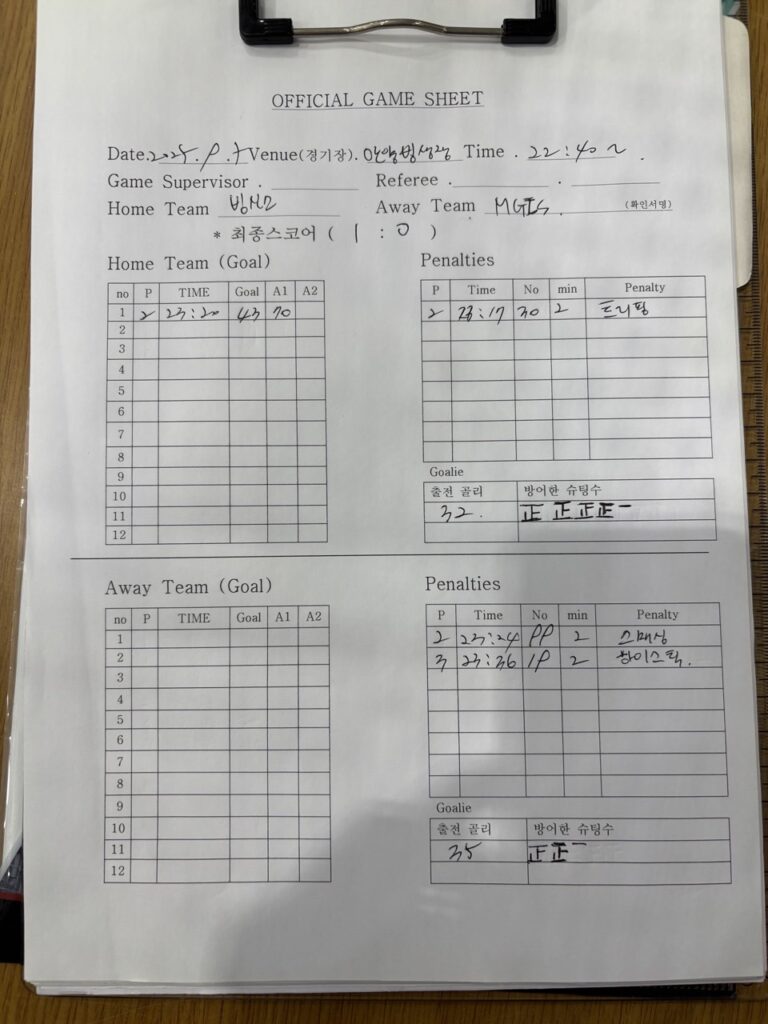 OFFICIAL GAME SHEET
Date. 2025. 9. Venue(경기장). Time . 22:40 ~ .
Game Supervisor . Referee . .
Home Team Away Team MGIS. (확인서명)
* 최종스코어 ( 1 : 0 )
Home Team (Goal) Penalties
no P TIME Goal A1 A2
1 2 23:20 43 70
2
3
4
5
6
7
8
9
10
11
12
P Time No min Penalty
2 23:17 30 2 트리핑
Goalie
출전 골리 방어한 슈팅수
32. 正 正 正 正 一
Away Team (Goal) Penalties
no P TIME Goal A1 A2
1
2
3
4
5
6
7
8
9
10
11
12
P Time No min Penalty
2 23:24 99 2 스래싱
3 23:36 19 2 하이스틱.
Goalie
출전 골리 방어한 슈팅수
35 正 正 一